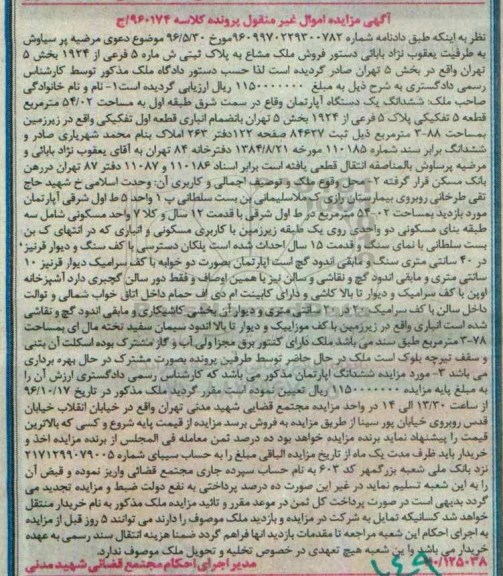 آگهی مزایده اموال غیر منقول پرونده کلاسه ۹۶۰۱۷۴/ج
نظر به اینکه طبق دادنامه شماره ۹۶۰۹۹۷۰۲۲۹۳۰۰۷۸۲ مورخ ۹۶/۵/۳۰ موضوع دعوی مرضیه پر سیاوش
به طرفیت یعقوب نژاد بابائی دستور فروش ملک مشاع به پلاک ثبتی ش ماره ۵ فرعی از ۱۹۲۴ بخش ۵
تهران واقع در بخش ۵ تهران صادر گردیده است لذا حسب دستور دادگاه ملک مذکور توسط کارشناس
رسمی دادگستری به شرح ذیل به مبلغ ۱۱۵۰۰۰۰۰۰۰ ریال ارزیابی گردیده است ۱- نام و نام خانوادگی
صاحب ملک: ششدانگ یک دستگاه آپارتمان وقاع در سمت شرق طبقه اول به مساحت ۵۴/۰۲ مترمربع
قطعه ۵ تفکیکی پلاک ۵ فرعی از ۱۹۲۴ بخش ۵ تهران بانضمام انباری قطعه اول تفکیکی واقع در زیرزمین
بمساحت ۳-۸۸ مترمربع ذیل ثبت ۸۴۶۲۷ صفحه ۱۲۲ دفتر ۲۶۳ املاک بنام محمد شهریاری صادر و
ششدانگ برابر سند شماره ۱۱۰۱۸۵ مورخه ۱۳۸۴/۸/۲۱ دفترخانه ۸۴ تهران به آقای یعقوب نژاد بابائی و
مرضیه پرسیاوش بالمناصفه انتقال قطعی یافته است برابر اسناد ۱۱۰۱۸۶ و ۱۱۰۸۷ دفتر ۸۷ تهران دررهن
بانک مسکن قرار گرفته ۲- محل وقوع ملک و توصیف اجمالی و کاربری آن: وحدت اسلامی خ شهید حاج
تقی طرخانی روبروی بیمارستان رازی ک ملاسلیمانی بن بست سلطانی پ ۱ واحد ۵ ط اول شرقی آپارتمان
مورد بازدید بمساحت ۵۴-۰۲ مترمربع در ط اول شرقی با قدمت ۱۲ سال و کلا ۷ واحد مسکونی شامل سه
طبقه بنای مسکونی دو واحدی روی یک طبقه زیرزمین با کاربری مسکونی و انباری که در انتهای ک بن
بست سلطانی با نمای سنگ و قدمت ۱۵ سال احداث شده است پلکان دسترسی با کف سنگ و دیوار قرنیز
در ۴۰ سانتی متری سنگ و مابقی اندود گچ است آپارتمان بصورت دو خوابه با کف سرامیک دیوار قرنیز ۱۰
سانتی متری و مابقی اندود گچ و نقاشی و سالن نیز با همین اوصاف و فقط دور سالن گچبری دارد آشپزخانه
اوپن با کف سرامیک و دیوار تا بالا کاشی و دارای کابینت ام دی اف حمام داخل اتاق خواب شمالی و توالت
داخل سالن با کف سرامیک ۲۰ در ۲۰ سانتی متری و دیوار آن بخشی کاشیکاری و مابقی اندود گچ و نقاشی
شده است انباری واقع در زیرزمین با کف موزاییک و دیوار تا بالا اندود سیمان سفید تخته مال ای بمساحت
۳-۷۸ مترمربع طبق سند می باشد ملک دارای کنتور برق مجزا ولی آب و گاز مشترک بوده اسکلت آن بتنی
و سقف تیرچه بلوک است ملک در حال حاضر توسط طرفین پرونده بصورت مشترک در حال بهره برداری
می باشد ۳- مورد مزایده ششدانگ اپارتمان مذکور می باشد که کارشناس رسمی دادگستری ارزش آن را
به مبلغ پایه مزایده ۱۱۵۰۰۰۰۰۰۰ ریال تعیین نموده است مقرر گردید ملک مذکور در تاریخ ۹۶/۱۰/۱۷
از ساعت ۱۳/۳۰ الی ۱۴ در واحد مزایده مجتمع قضایی شهید مدنی تهران واقع در خیابان انقلاب خیابان
قدس روبروی خیابان پور سینا از طریق مزایده به فروش برسد مزایده از قیمت پایه شروع و کسی که بالاترین
قیمت را پیشنهاد نماید برنده مزایده خواهد بود ده درصد ثمن معامله فی المجلس از برنده مزایده اخذ و
خریدار باید ظرف مدت یک ماه از تاریخ مزایده الباقی مبلغ را به حساب سیبای شماره ۲۱۷۱۲۹۹۰۷۹۰۰۵
نزد بانک ملی شعبه بزرگمهر کد ۶۰۳ به نام حساب سپرده جاری مجتمع قضائی واریز نموده و قبض آن
را به این شعبه تسلیم نماید در غیر این صورت ده درصد پرداختی به نفع دولت ضبط و مزایده تجدید می
گردد بدیهی است در صورت پرداخت کل ثمن در موعد مقرر و تائید مزایده ملک مذکور به نام خریدار منتقل
خواهد شد کسانیکه تمایل به شرکت در مزایده و بازدید ملک موصوف را دارند می توانند ۵ روز قبل از مزایده
به اجرای احکام این شعبه مراجعه تا مقدمات بازدید انها فراهم گردد ضمنا هزینه انتقال سند رسمی به عهده
خریدار می باشد و این شعبه هیچ تعهدی در خصوص تخلیه و تحویل ملک موصوف ندارد.
۱۰/۱۲۵۰۳۸ مدیر اجرای احکام مجتمع قضائی شهید مدنی